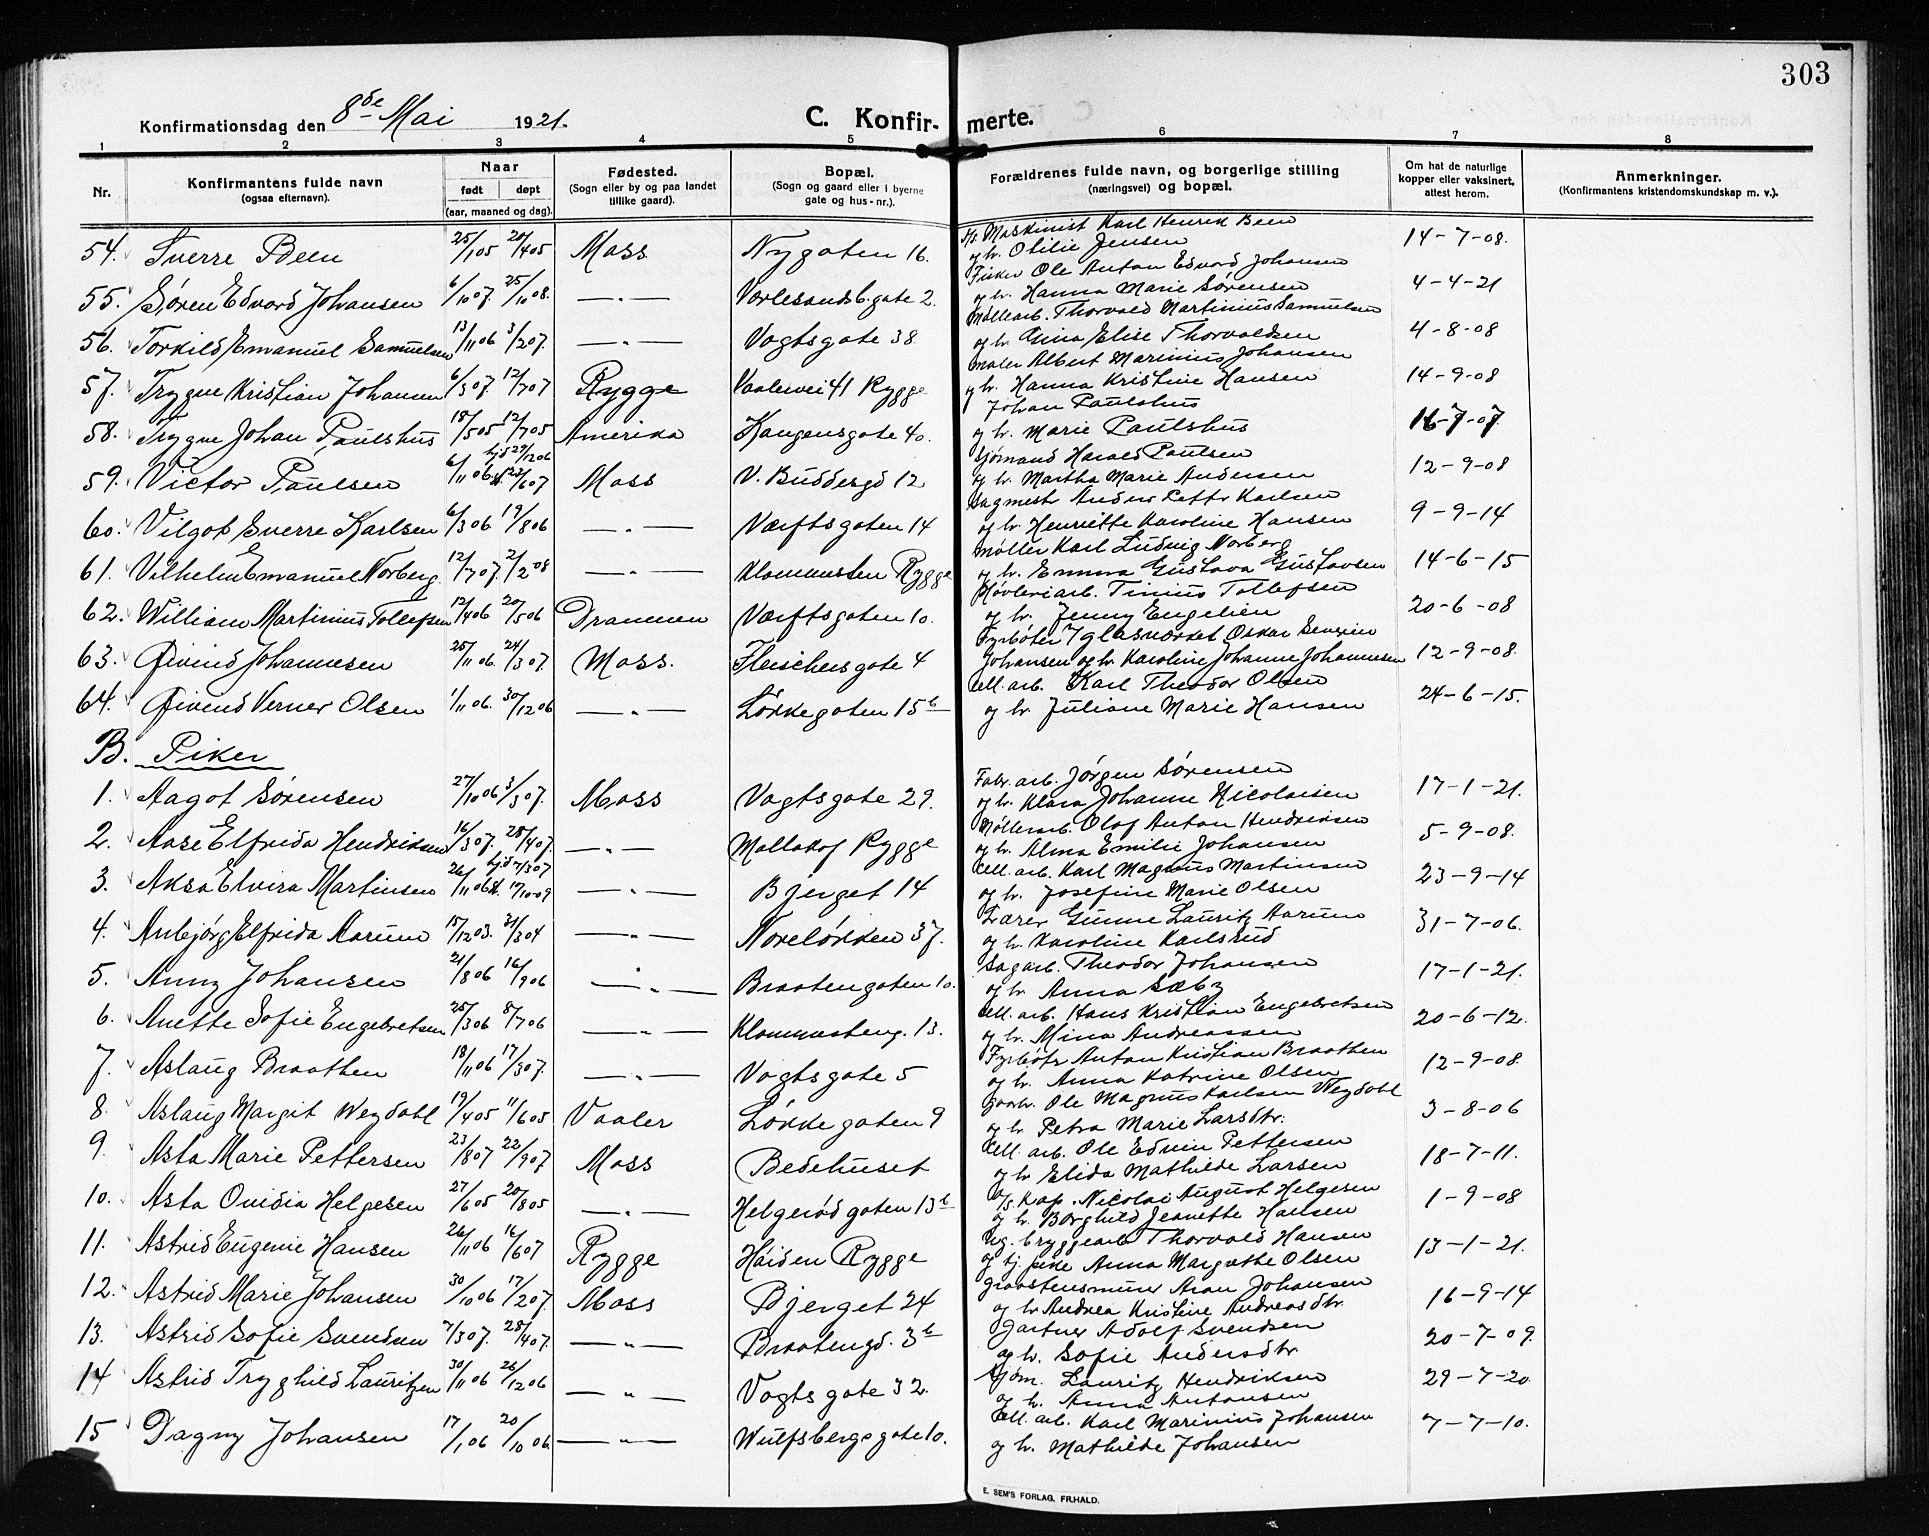 303
Konfirmationsdag den 8de Mai 1921. C. Konfirmerte.
1 2 3 4 5 6 7 8
Nr. Konfirmantens fulde navn (ogsaa efternavn). Naar født døpt (aar, maaned og dag). Fødested. (Sogn eller by og paa landet tillike gaard). Bopæl. (Sogn og gaard eller i byerne gate og hus-nr.). Forældrenes fulde navn, og borgerlige stilling (næringsvei) og bopæl. Om hat de naturlige kopper eller vaksinert, attest herom. Anmerkninger. (Konfirmantens kristendomskundskap m. v.).
54. Sverre Been 25/1 05 20/4 05 Moss Nygaten 16. Maskinist Karl Henrik Been og h. Otilie Jensen 14-7-08.
55. Søren Edvard Johansen 6/10 07. 25/10 08. —„— Varlesandsb.gate 2. Fisker Ole Anton Edvard Johansen og h. Hanna Marie Sørensen 4-4-21
56. Torkild Emanuel Samuelsen 13/11 06 3/2 07. —„— Vogtsgate 38 Møllearb. Thorvald Martinius Samuelsen og h. Gina Elise Thorvaldsen 4-8-08
57. Trygve Kristian Johansen 6/3 07. 12/7 07 Rygge Vaalervei 41 Rygge Maler Albert Marinius Johansen og h. Hanna Kristine Hansen 14-9-08
58. Trygve Johan Paulshus 18/5 05 12/7 05 Amerika Kongensgate 40. Johan Paulshus og h. Marie Paulshus 16-7-07.
59. Victor Paulsen 6/11 06 hjd 29/12 06 k. 23/6 07 Moss V. Buddesgd 12 Sjømand Harald Paulsen og h. Martha Marie Andersen 12-9-08
60. Vilgot Sverre Karlsen 6/3 06 19/8 06 —„— Værftsgaten 14 Sagmestr Anders Petter Karlsen og h. Henriette Karoline Hansen 9-9-14
61. Vilhelm Emanuel Norberg. 12/7 07. 2/2 08 —„— Klommesten Rygge Møller Karl Ludvig Norberg og h. Emma Gustava Gustavsen 14-6-15
62. William Martinius Tollefsen 12/4 06 20/5 06 Drammen Værftsgaten 10. Høvleriarb. Tinius Tollefsen og h. Jenny Engelien 20-6-08
63. Øivind Johannesen 25/11 06. 24/3 07. Moss. Fleischersgate 4 Fyrbøter v/glasværket Oskar Severin Johansen og h. Karoline Johanne Johannesen 12-9-08.
64. Øivind Verner Olsen 1/11 06. 30/12 06 —„— Løkkegaten 15b Cell. arb. Karl Theodor Olsen og h. Juliane Marie Hansen 24-6-15.
B. Piker
1. Aagot Sørensen 27/10 06 3/3 07. Moss Vogtsgate 29. Fabr. arb. Jørgen Sørensen og h. Klara Johanne Nicolaisen 17-1-21.
2. Aase Elfrida Hendriksen 16/3 07. 28/4 07. —„— Molladof Rygge Møllerarb. Olaf Anton Hendriksen og h. Alma Emilie Johansen 5-9-08.
3. Aksa Elvira Martinsen 26/11 06 hjd 7/3 07 k. 17/10-09 —„— Bjerget 14 Cell. arb. Karl Magnus Martinsen og h. Josefine Marie Olsen 23-9-14
4. Anbjørg Elfrida Aarum 15/12 03. 31/3 04 —„— Noreløkken 37. Lærer Gunne Lauritz Aarum og h. Karoline Karlsrud 31-7-06.
5. Anny Johansen 21/8 06 16/9 06 —„— Braatengaten 10. Sagarb. Theodor Johansen og h. Anna Sæby 17-1-21.
6. Anette Sofie Engebretsen 25/3 06 8/7 06 —„— Klommesteng. 13. Cell. arb. Hans Kristian Engebretsen og h. Mina Andreassen 20-6-12.
7. Aslaug Braathen 18/11 06 17/3 07. —„— Vogtsgate 5 Fyrbøtr Anton Kristian Braathen og h. Anna Katrine Olsen 12-9-08.
8. Aslaug Margit Weydahl 19/4 05 11/6 05 Vaaler Løkkegaten 9 Gaarbr. Ole Magnus Karlsen Weydahl og h. Petra Marie Larsdtr. 3-8-06
9. Asta Marie Pettersen 23/8 07 22/9 07. Moss Bedehuset Cell. arb. Ole Edvin Pettersen og h. Elida Mathilde Larsen 18-7-11.
10. Asta Ovidia Helgesen 27/6 05 20/8 05 —„— Helgerødgaten 13b D/S Kap. Nicolai August Helgesen og h. Borghild Jeanette Hansen 1-9-08
11. Astrid Eugenie Hansen 26/11 06 16/6 07 Rygge Haiden Rygge Ug. bryggearb Thorvald Hansen og tj. pike Anna Margrethe Olsen 13-1-21.
12. Astrid Marie Johansen 30/10 06 17/2 07. Moss Bjerget 24 Graastensmurer Aron Johansen og h. Andrea Kristine Andreasdtr. 16-9-14
13. Astrid Sofie Svendsen 7/3 07. 28/4 07. —„— Braatengd. 3b Gartner Adolf Svendsen og h. Sofie Andersdtr. 20-7-09.
14 Astrid Tryghild Lauritzen 30/11 06 26/12 06 —„— Vogtsgate 32. Sjøm. Lauritz Hendriksen og h. Anna Antonsen 29-7-20.
15 Dagny Johansen 17/1 06 20/10 06. —„— Wulfsbergsgate 10. Cell. arb. Karl Marinius Johansen og h. Mathilde Johansen 7-7-10.
E. SEM'S FORLAG, FR.HALD.